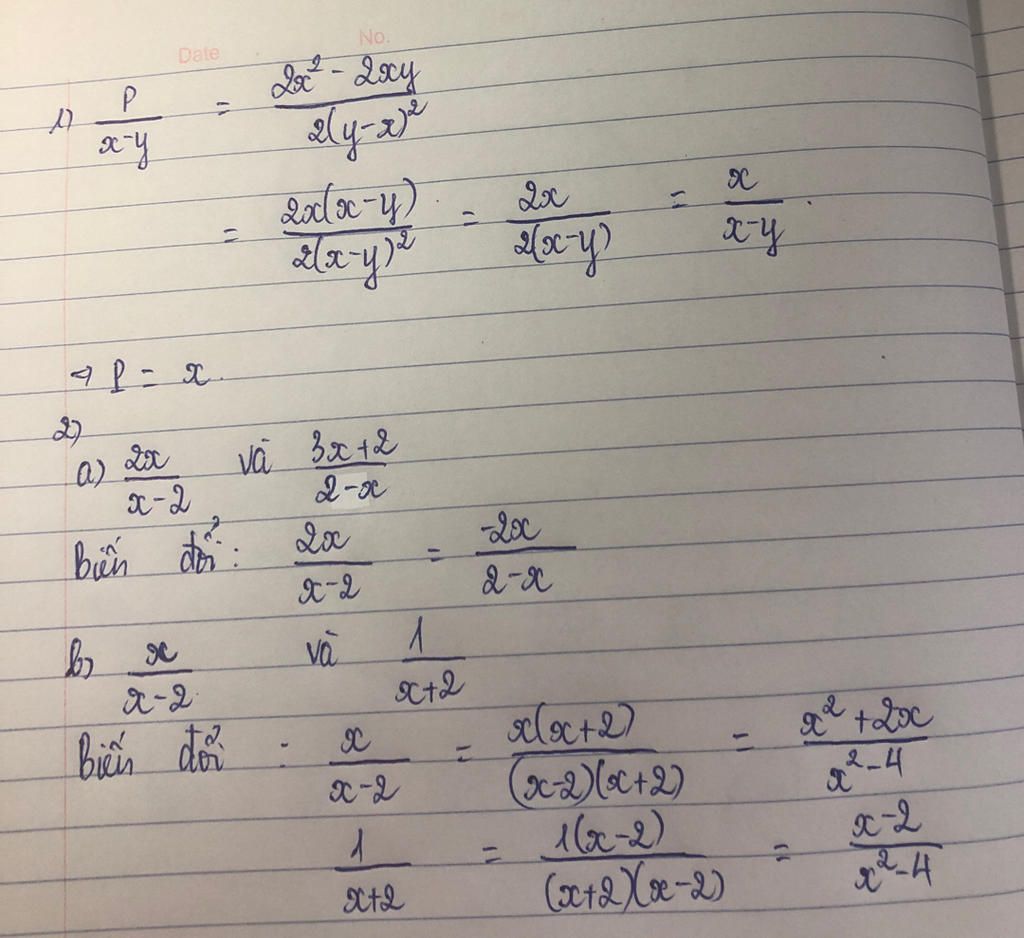 Date No.
1) P/(x-y) = (2x² - 2xy)/(2(y-x)²)
= (2x(x-y))/(2(x-y)²) = 2x/(2(x-y)) = x/(x-y).
⇒ P = x.
2)
a) 2x/(x-2) và (3x+2)/(2-x)
Biến đổi: 2x/(x-2) = -2x/(2-x)
b) x/(x-2) và 1/(x+2)
Biến đổi : x/(x-2) = (x(x+2))/((x-2)(x+2)) = (x²+2x)/(x²-4)
1/(x+2) = (1(x-2))/((x+2)(x-2)) = (x-2)/(x²-4)